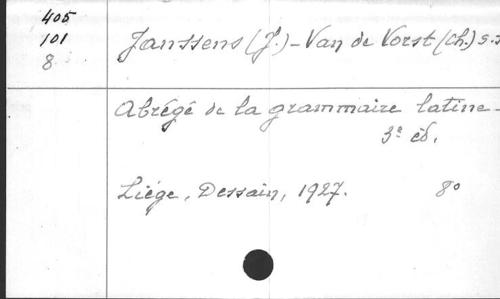 405
101
8
Janssens (J.) - Van de Vorst (Ch.) s.j
Abrégé de la grammaire latine -
3e éd.
Liége, Dessain, 1927. 8°